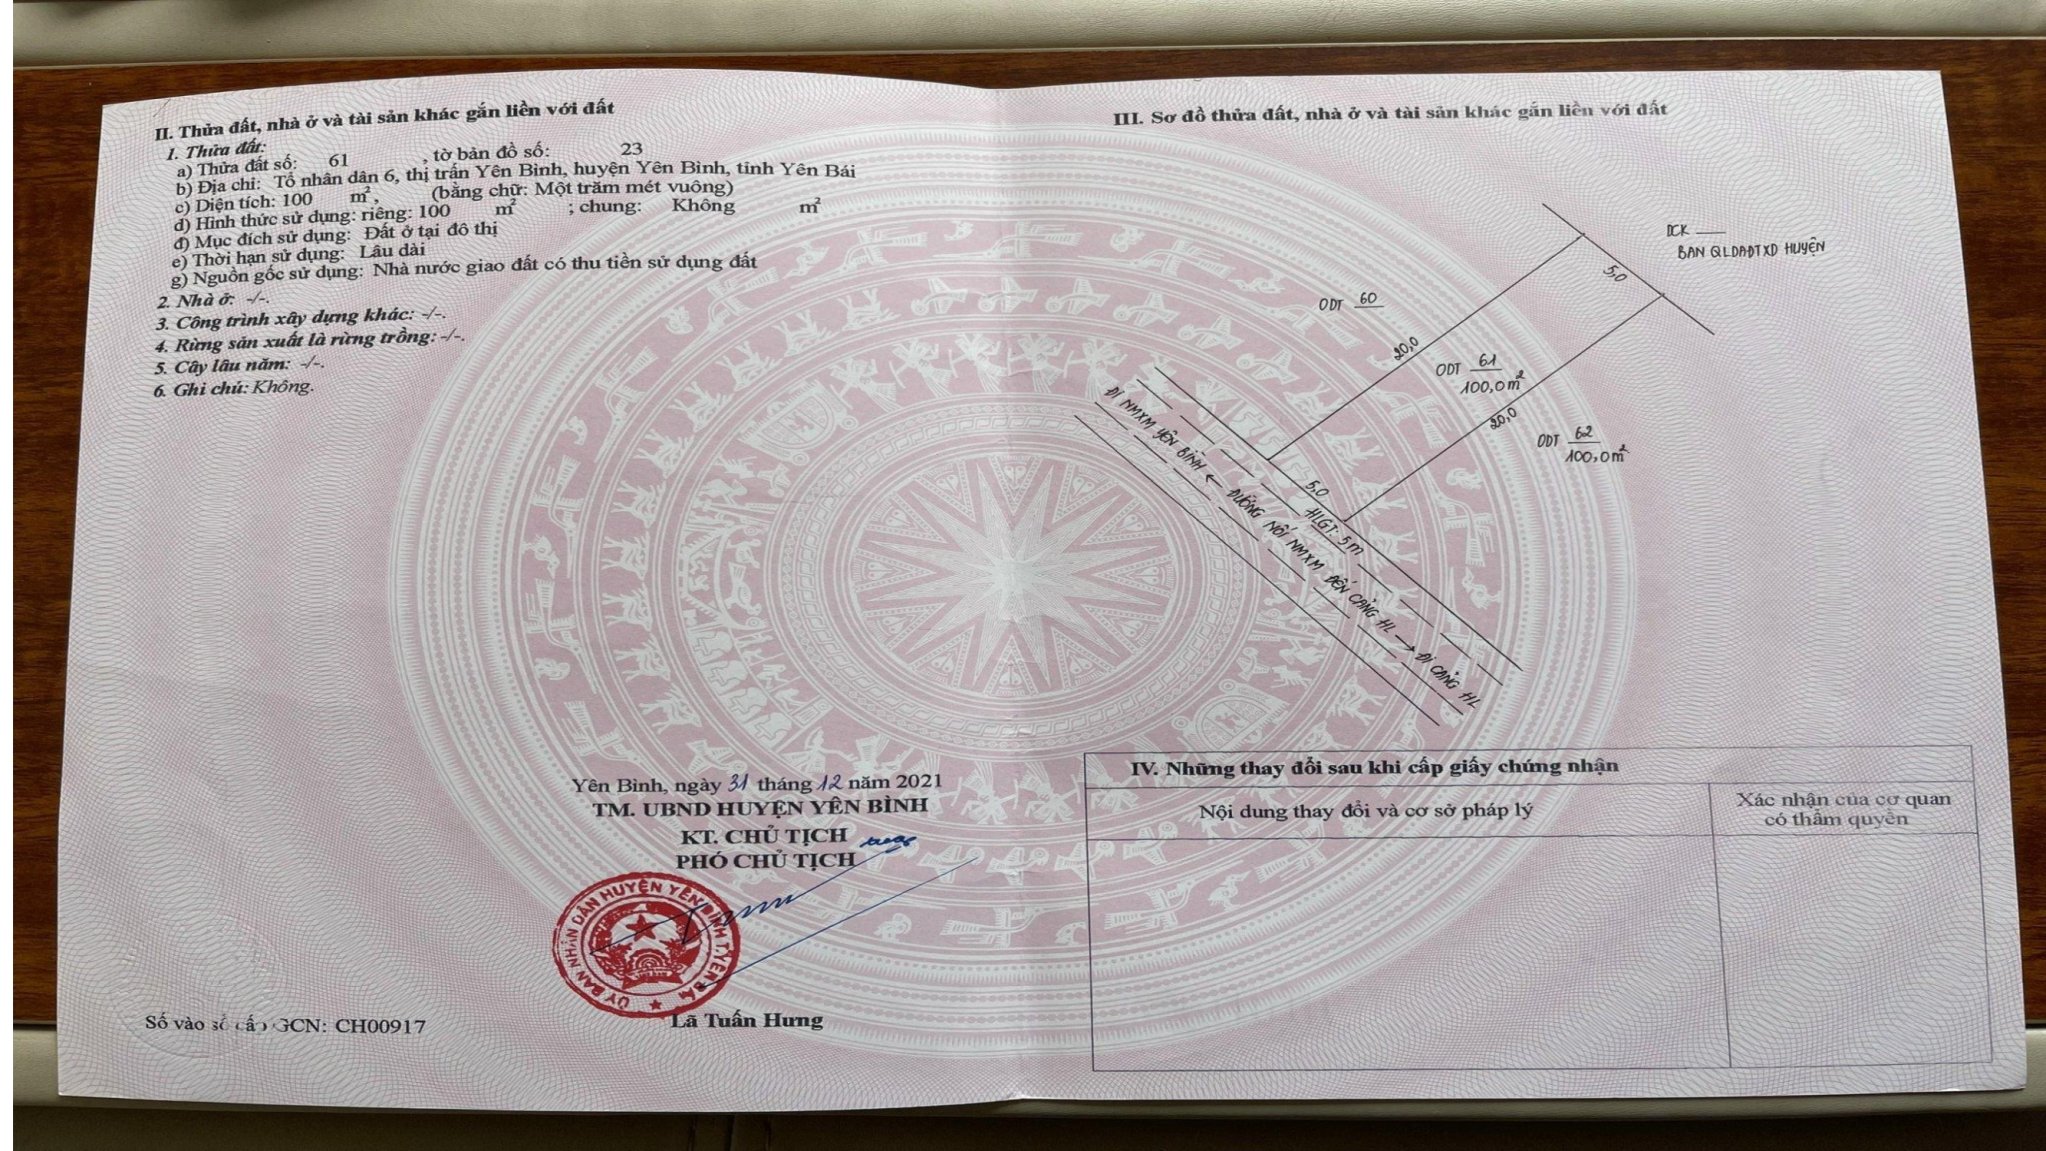 II. Thửa đất, nhà ở và tài sản khác gắn liền với đất
1. Thửa đất:
a) Thửa đất số: 61 , tờ bản đồ số: 23
b) Địa chỉ: Tổ nhân dân 6, thị trấn Yên Bình, huyện Yên Bình, tỉnh Yên Bái
c) Diện tích: 100 m², (bằng chữ: Một trăm mét vuông)
d) Hình thức sử dụng: riêng: 100 m² ; chung: Không m²
đ) Mục đích sử dụng: Đất ở tại đô thị
e) Thời hạn sử dụng: Lâu dài
g) Nguồn gốc sử dụng: Nhà nước giao đất có thu tiền sử dụng đất
2. Nhà ở: -/-.
3. Công trình xây dựng khác: -/-.
4. Rừng sản xuất là rừng trồng: -/-.
5. Cây lâu năm: -/-.
6. Ghi chú: Không.
Yên Bình, ngày 31 tháng 12 năm 2021
TM. UBND HUYỆN YÊN BÌNH
KT. CHỦ TỊCH
PHÓ CHỦ TỊCH
ỦY BAN NHÂN DÂN HUYỆN YÊN BÌNH T.YÊN BÁI
Lã Tuấn Hưng
Số vào sổ cấp GCN: CH00917
III. Sơ đồ thửa đất, nhà ở và tài sản khác gắn liền với đất
DCK
BAN QLDAĐTXD HUYỆN
5,0
ODT 60
20,0
ODT 61
100,0m²
20,0
ODT 62
100,0m²
5,0
HLGT: 5m
ĐI NMXM YÊN BÌNH ← ĐƯỜNG NỐI NMXM ĐẾN CẢNG HL → ĐI CẢNG HL
IV. Những thay đổi sau khi cấp giấy chứng nhận
Nội dung thay đổi và cơ sở pháp lý
Xác nhận của cơ quan
có thẩm quyền